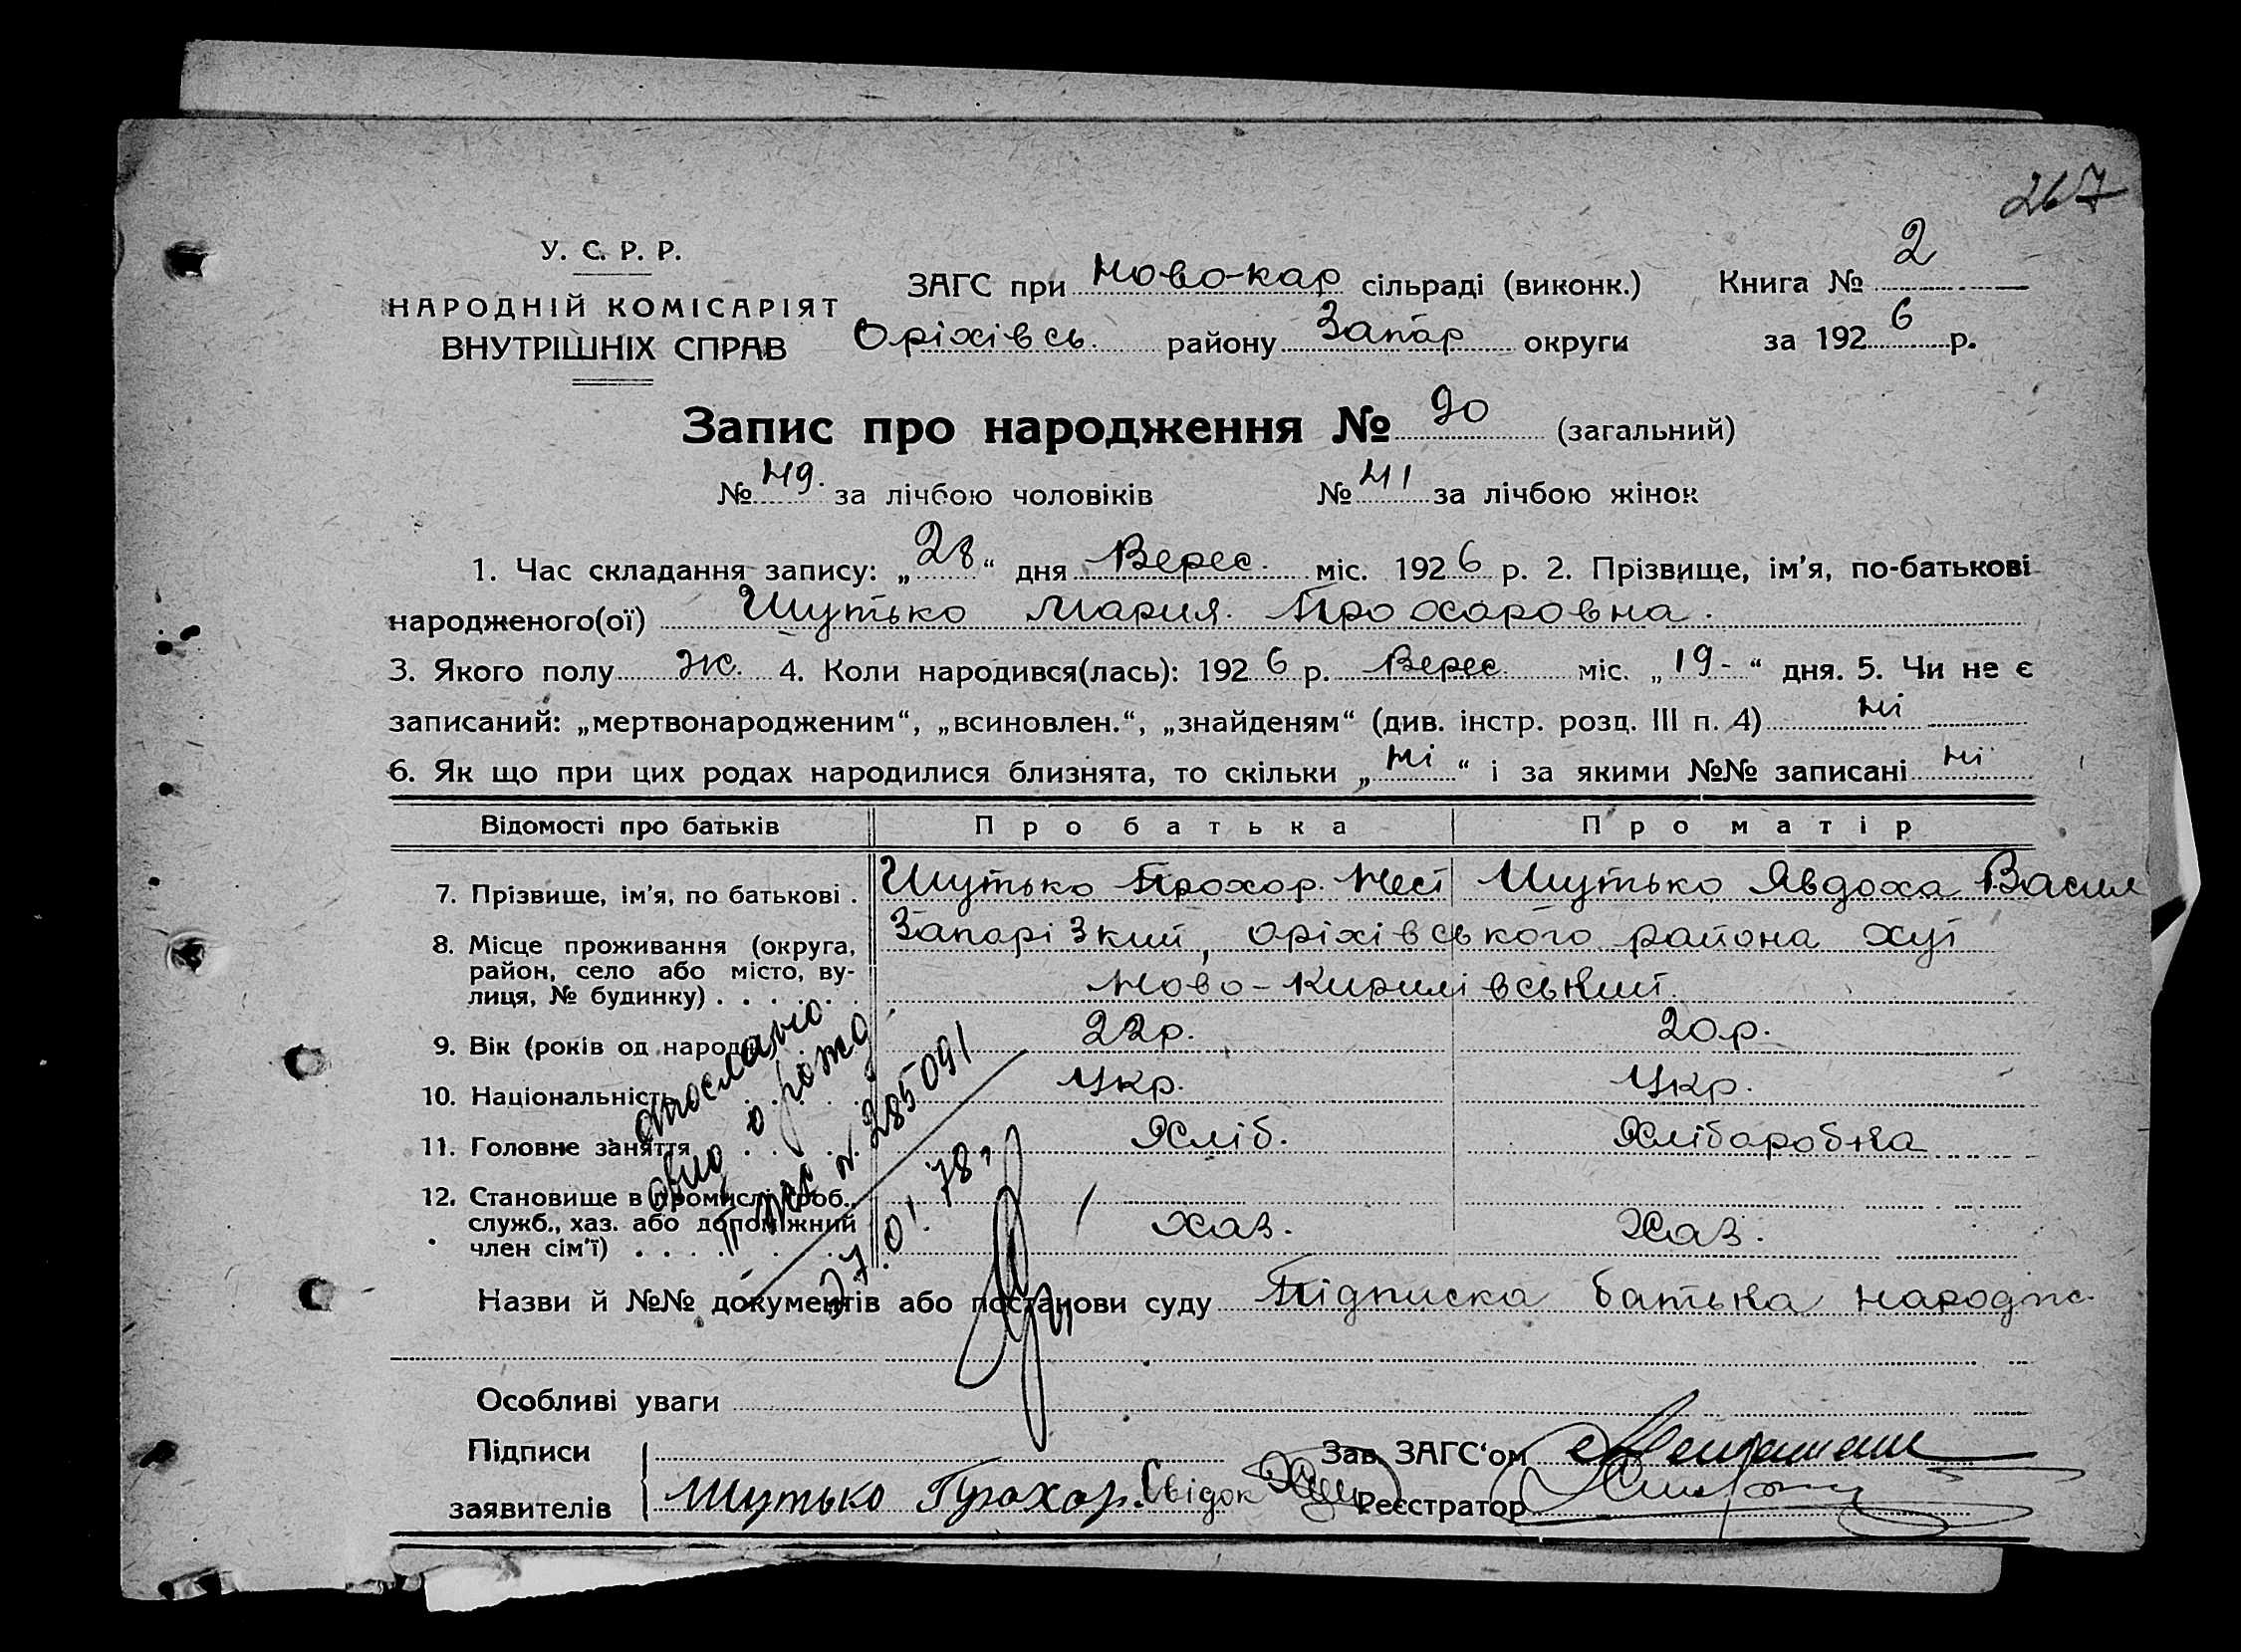 267
У. С. Р. Р.
НАРОДНІЙ КОМІСАРІЯТ
ВНУТРІШНІХ СПРАВ
ЗАГС при Ново-кар сільраді (виконк.) Книга № 2
Оріхівсь. району Запар округи за 1926 р.
Запис про народження № 90 (загальний)
№ 49. за лічбою чоловіків № 41 за лічбою жінок
1. Час складання запису: „28“ дня Верес. міс. 1926 р. 2. Прізвище, ім’я, по-батькові
народженого(ої) Шутько Мария. Прохоровна.
3. Якого полу ж. 4. Коли народився(лась): 1926 р. Верес. міс. „19-“ дня. 5. Чи не є
записаний: „мертвонародженим“, „всиновлен.“, „знайденям“ (див. інстр. розд. III п. 4) ні
6. Як що при цих родах народилися близнята, то скільки „ні“ і за якими №№ записані ні
Відомості про батьків Про батька Про матір
7. Прізвище, ім’я, по батькові . Шутько Прохор. Нест Шутько Явдоха Васил
8. Місце проживання (округа, район, село або місто, вулиця, № будинку) . . . . . . Запарізкий, оріхівського района хут
Ново-Кирилівський
9. Вік (років од народж 22р. 20р.
10. Національність Укр. Укр.
11. Головне заняття Хліб. Хлібаробка
12. Становище в промислі (роб., служб., хаз. або допоміжний член сім’ї) . . . . Хаз. Хаз.
отослано
о рожд
№ 285091
27.01.78г
Назви й №№ документів або постанови суду Підписка батька народж.
Особливі уваги
Підписи заявителів Шутько Прохор. Свідок
Зав. ЗАГС‘ом
Реєстратор